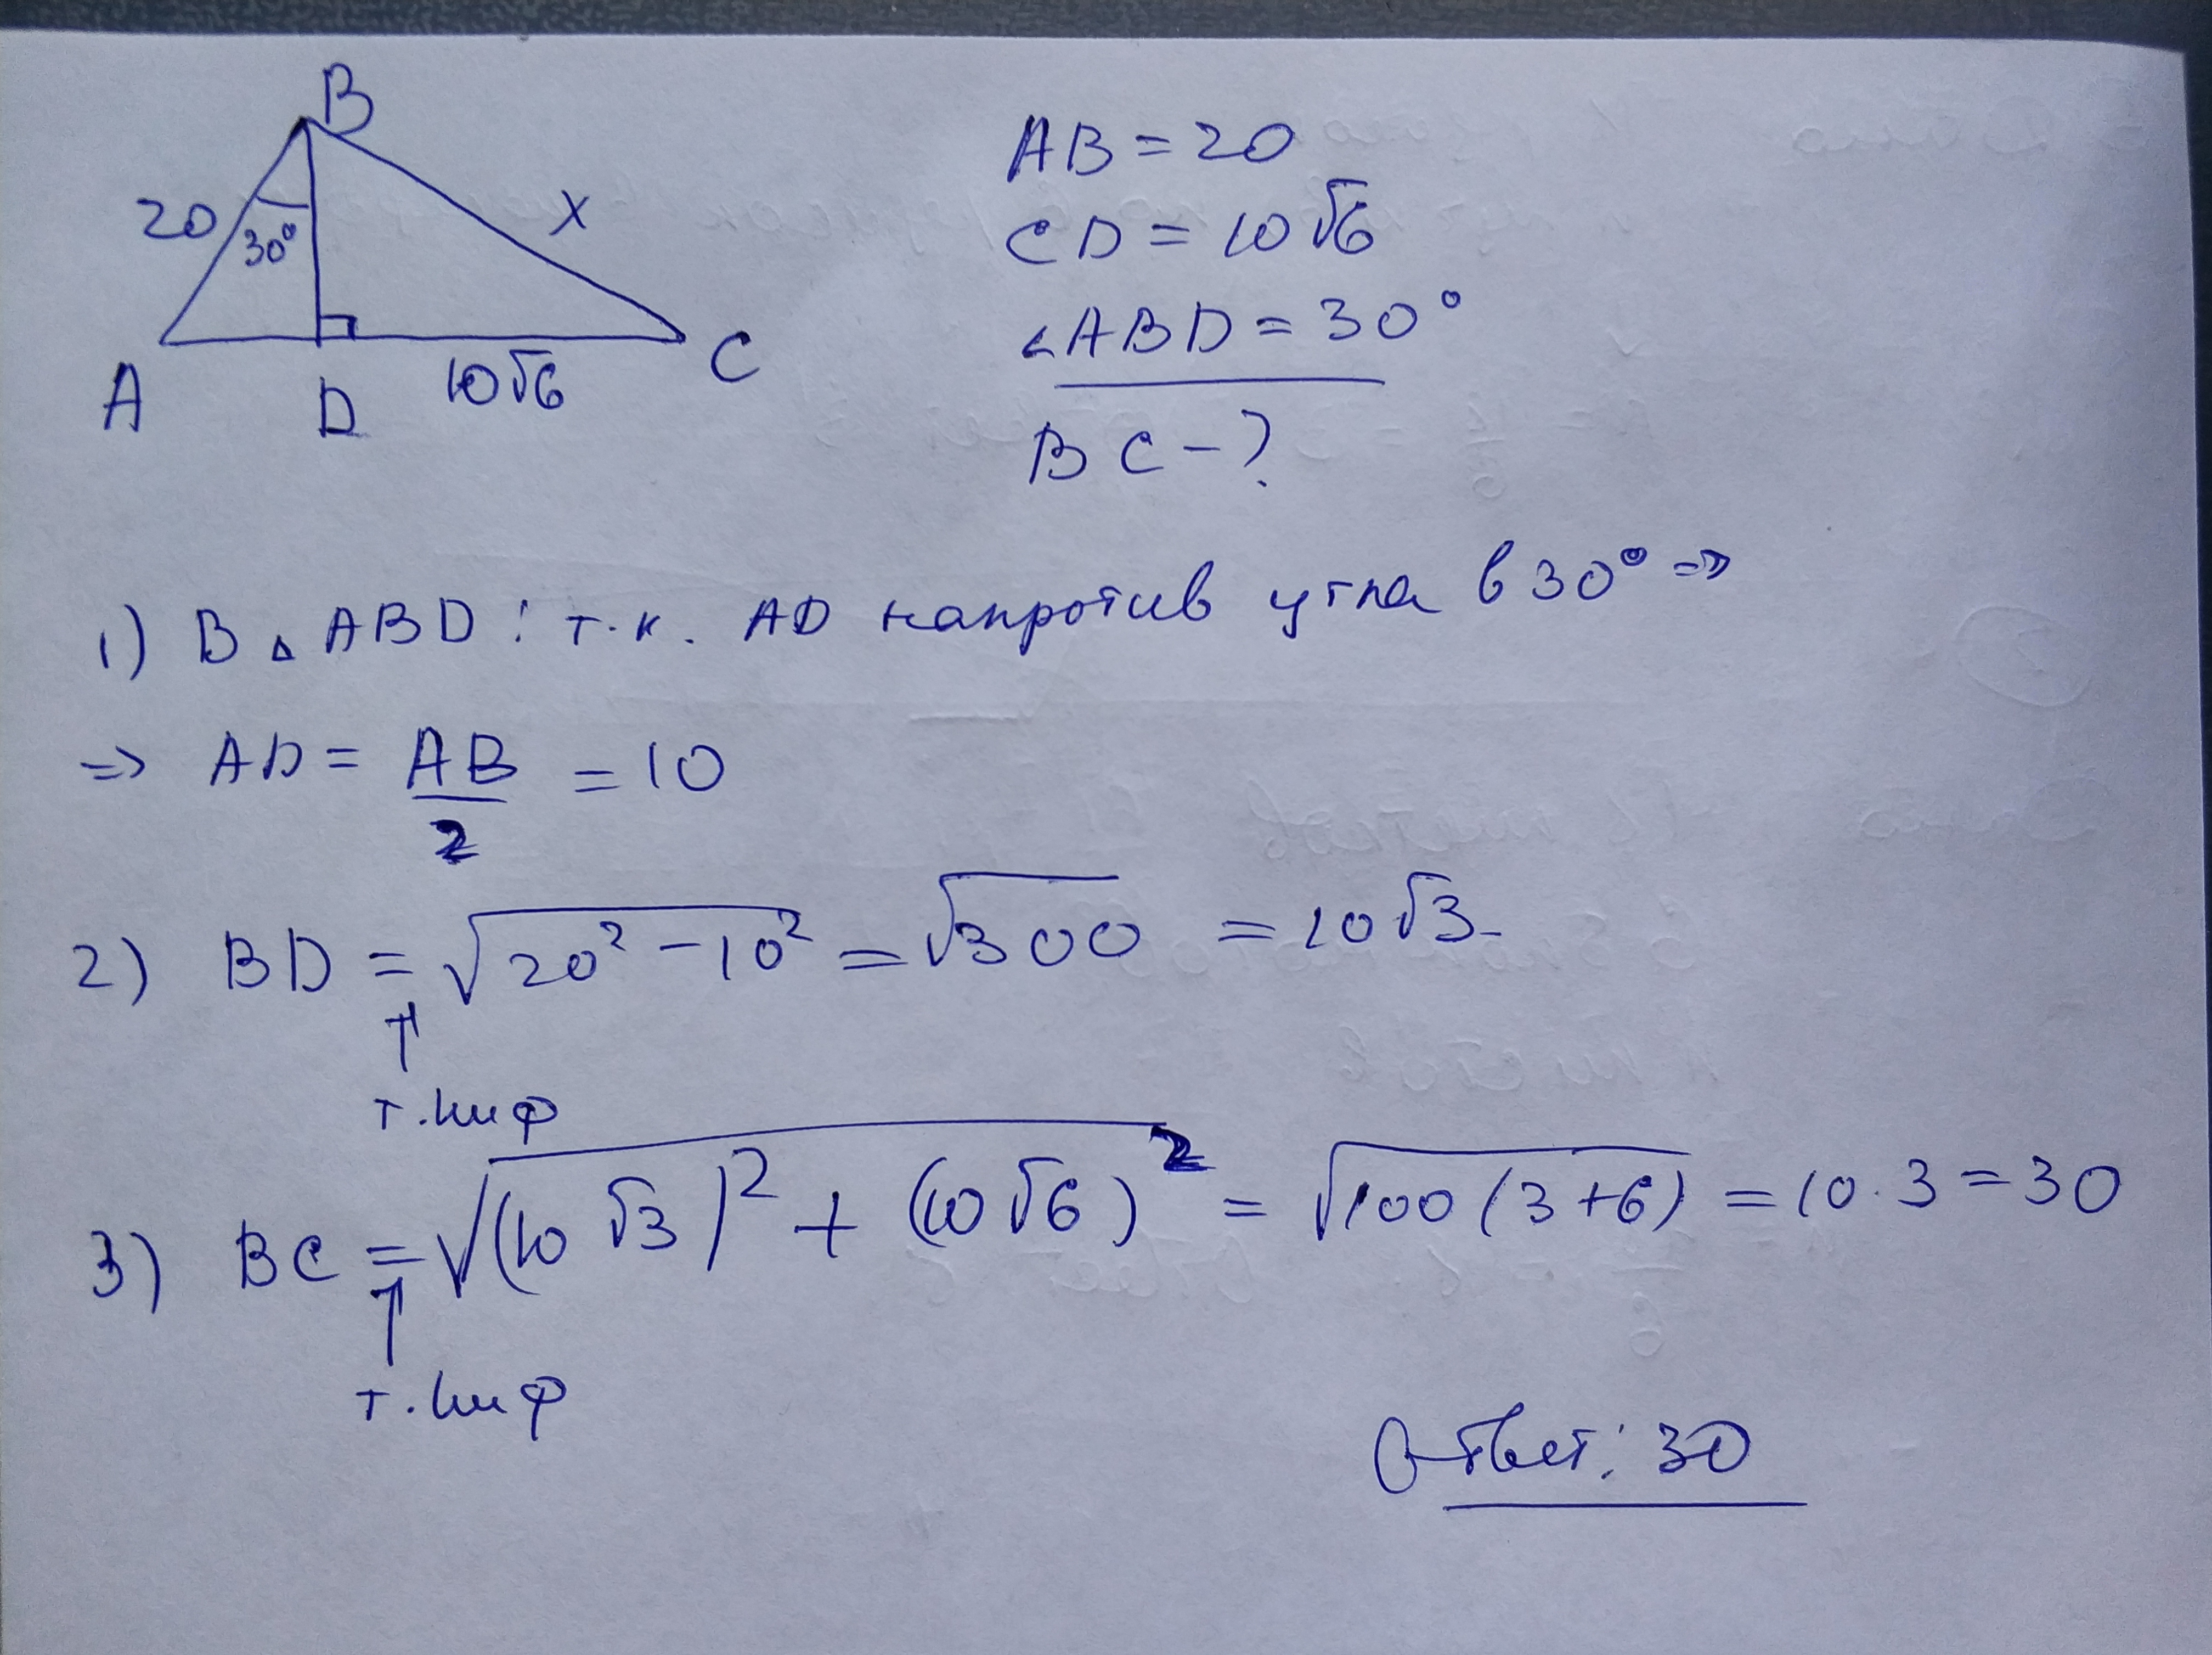 B
20
30°
x
A
D
10√6
C
AB = 20
CD = 10√6
∠ABD = 30°
BC - ?
1) В △ ABD : т.к. AD напротив угла в 30° =>
=> AD = AB/2 = 10
2) BD = √(20² - 10²) = √300 = 10√3
↑
т. Пиф
3) BC = √((10√3)² + (10√6)²) = √(100(3+6)) = 10·3 = 30
↑
т. Пиф
Ответ: 30